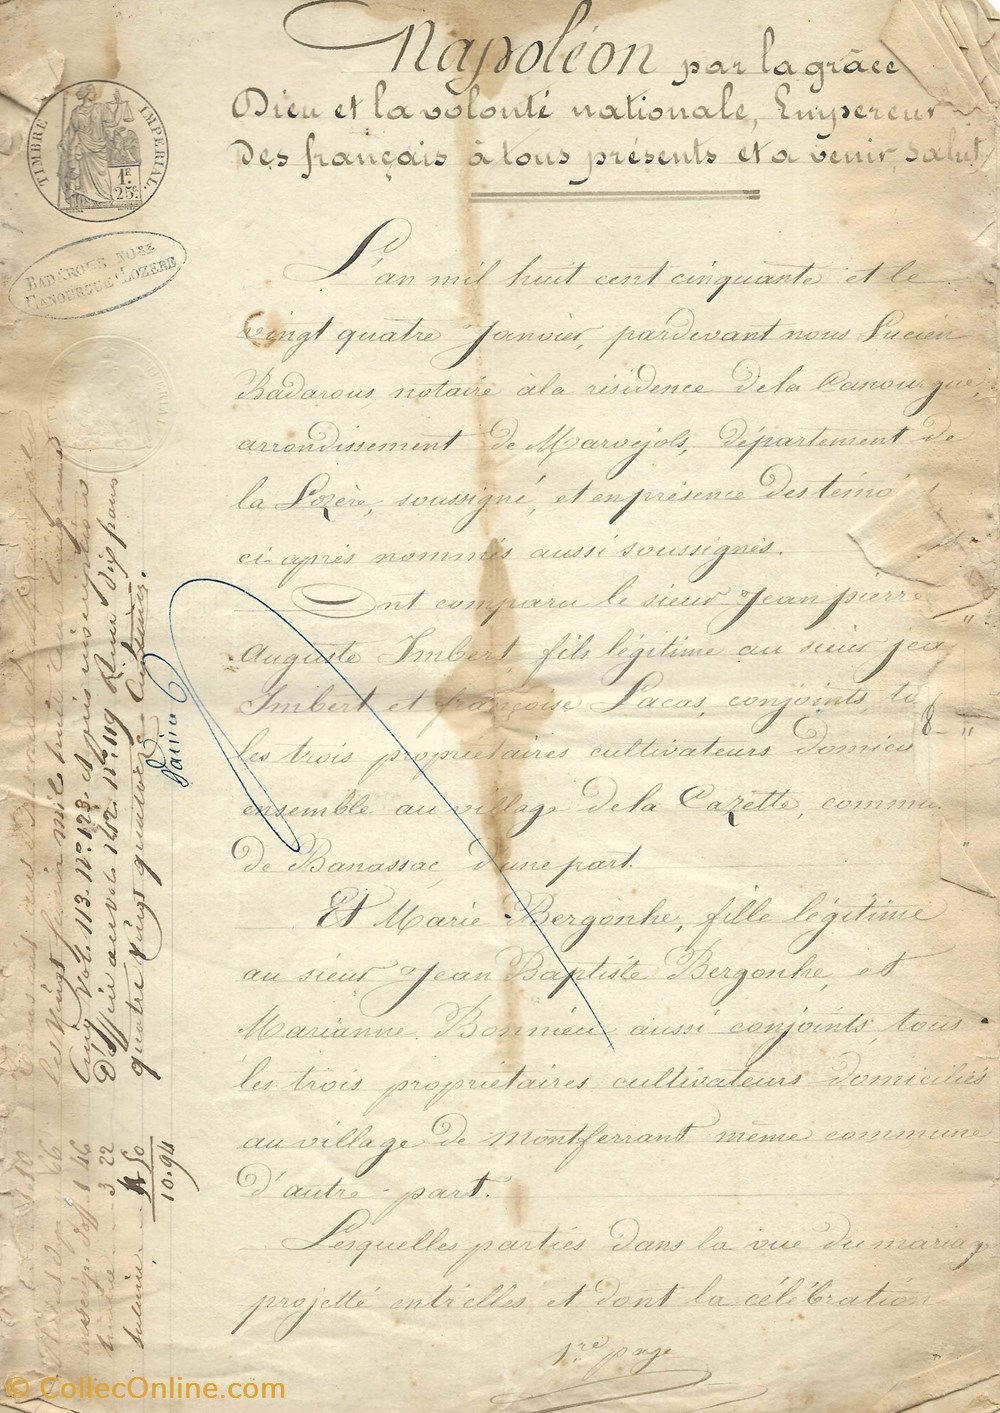 Napoléon par la grâce
Dieu et la volonté nationale, Empereur
Des français à tous présents et a venir, Salut,
TIMBRE IMPÉRIAL.
1F. 25c.
BADAROUX NORE
CANOURGUE-LOZERE
L'an mil huit cent cinquante et le
vingt quatre Janvier, pardevant nous Lucien
Badarous, notaire à la résidence de la Canourgue,
arrondissement de Marvejols, département de
la Lozère, soussigné, et en présence des témo
ci-après nommés aussi soussignés.
Ont comparu le sieur Jean pierre
Auguste Imbert, fils légitime au sieur jea
Imbert et françoise Lacas, conjoints, to
les trois propriétaires cultivateurs domici
ensemble au village de la Cazette, commu
de Banassac, d'une part.
8 "
Et Marie Bergonhe, fille légitime
au sieur Jean Baptiste Bergonhe, et
Marianne Bonnieu aussi conjoints, tous
les trois propriétaires cultivateurs domiciliés
au village de montferrant même commune
d'autre part.
Lesquelles parties dans la vue du mariag
projetté entr'elles et dont la célébration
1re page
vol. 113. No. 123. et
D'office au vol. 142. No. 119
quatre vingt quatorze Centimes.
66
1 46
3 22
salaire 50
10.94
© CollecOnline.com